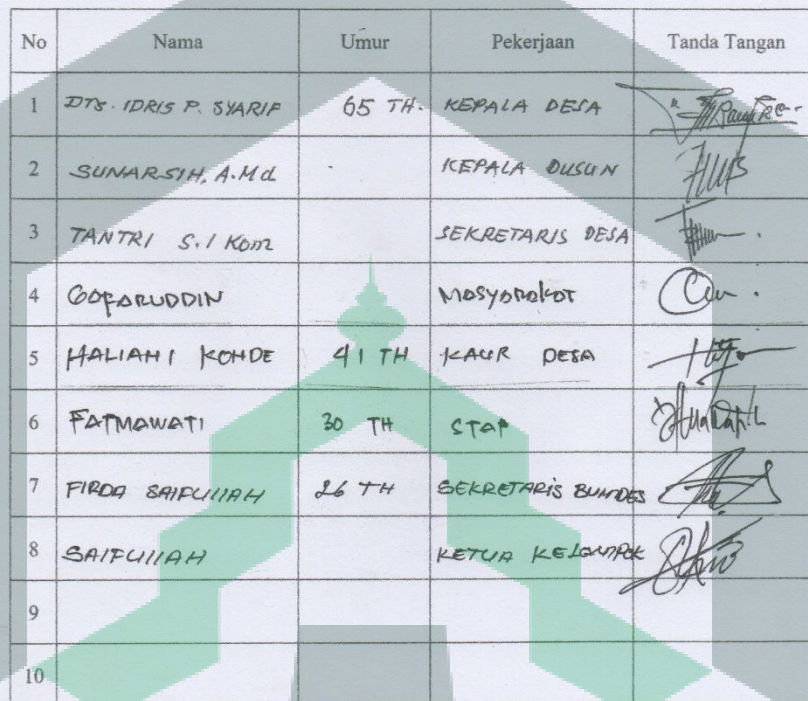 No Nama Umur Pekerjaan Tanda Tangan
1 DTS. IDRIS P. SYARIF 65 TH. KEPALA DESA
2 SUNARSIH, A.Md KEPALA DUSUN
3 TANTRI S.I Kom SEKRETARIS DESA
4 GAFARUDDIN MASYARAKAT
5 HALIANI KONDE 41 TH KAUR DESA
6 FATMAWATI 30 TH STAP
7 FIRDA SAIFULLAH 26 TH SEKRETARIS BUMDES
8 SAIFULLAH KETUA KELOMPOK
9
10